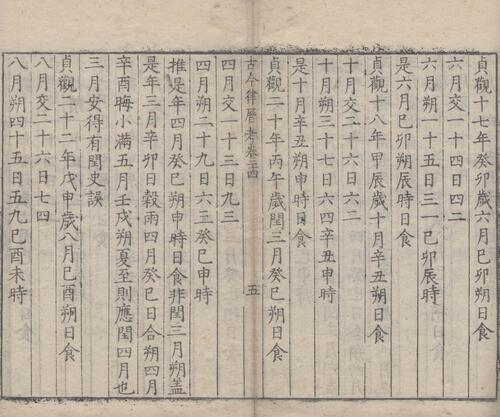 貞觀十七年癸卯歲六月己卯朔日食
六月交一十四日四二
六月朔一十五日三一己卯辰時
是六月己卯朔辰時日食
貞觀十八年甲辰歲十月辛丑朔日食
十月交二十六日六二
十月朔三十七日六四辛丑申時
是十月辛丑朔申時日食
貞觀二十年丙午歲閏三月癸巳朔日食
古今律曆考卷二十四
五
四月交一十三日九三
四月朔二十九日六三癸巳申時
推是年四月癸巳朔申時日食非閏三月朔盖
是年三月辛卯日穀雨四月癸巳日合朔四月
辛酉晦小滿五月壬戌朔夏至則應閏四月也
三月安得有閏史誤
貞觀二十二年戊申歲八月己酉朔日食
八月交二十六日七四
八月朔四十五日五九己酉未時